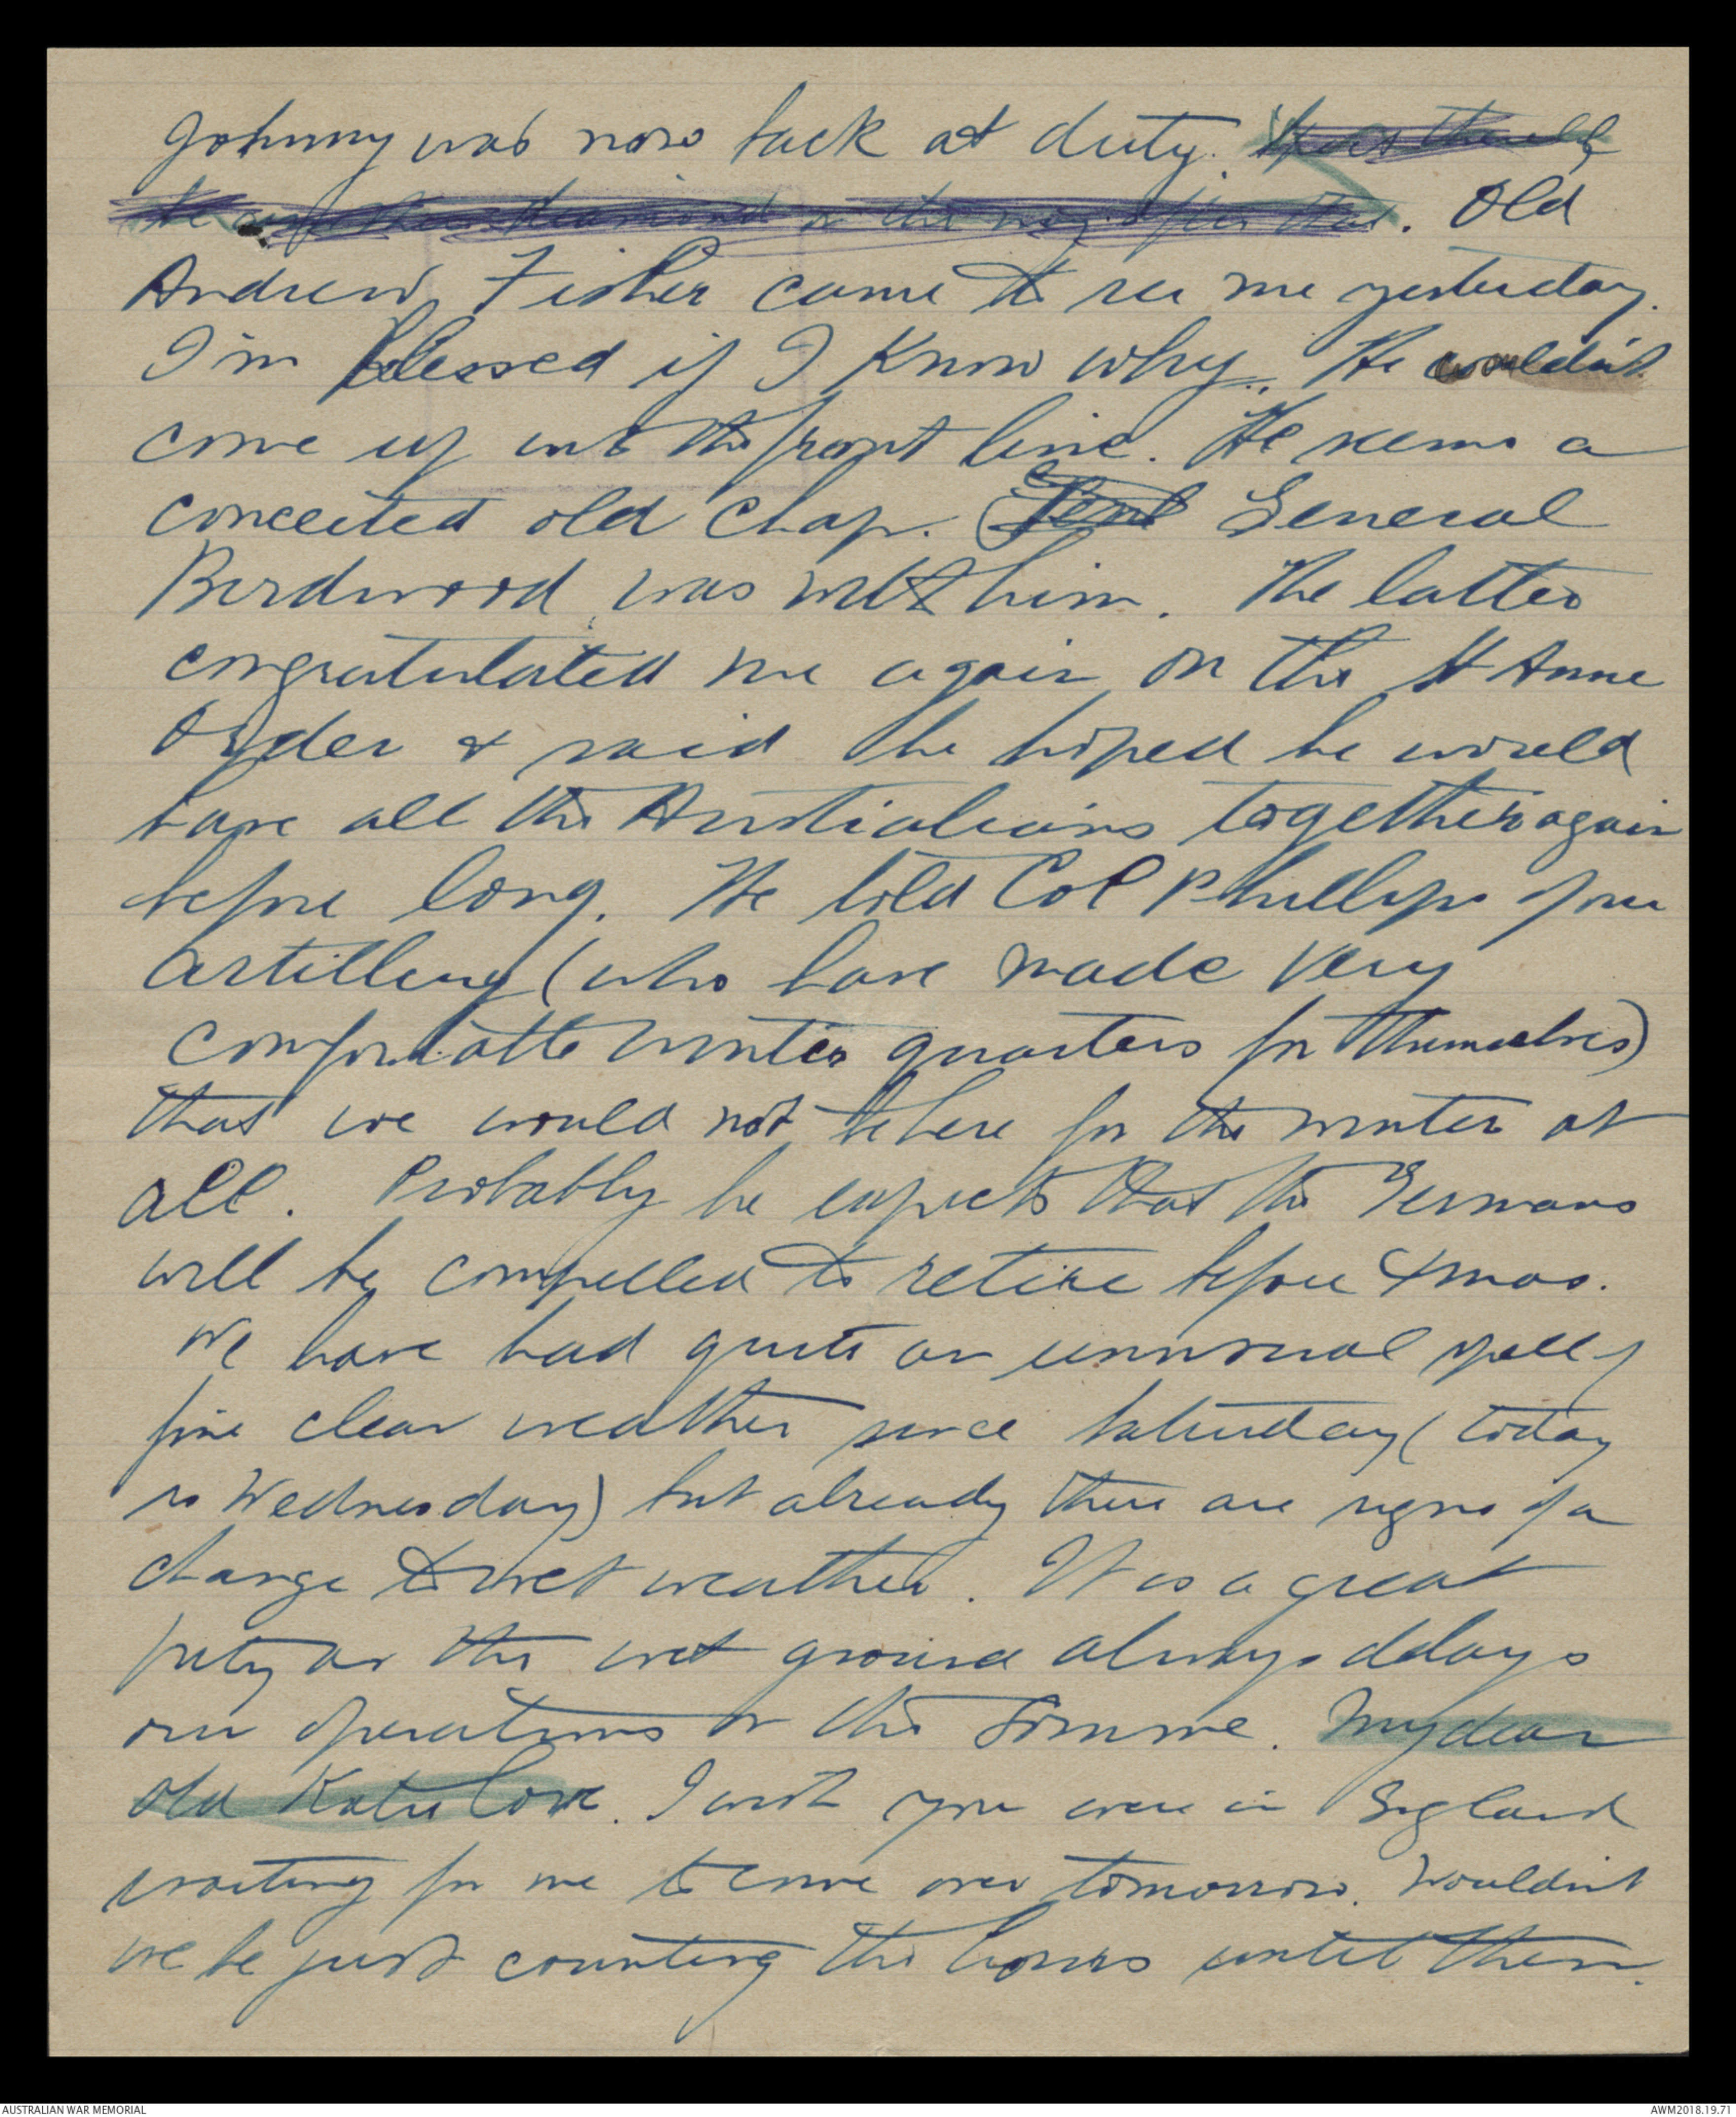 Johnny was now back at duty.
Old
Andrew Fisher came to see me yesterday.
I'm blessed if I know why. He wouldn't
come up into the front line. He seems a
conceited old chap. General
Birdwood was with him. The latter
congratulated me again on the St Anne
Order & said he hoped he would
have all the Australians together again
before long. He told Col Phillips of our
Artillery (who have made very
comfortable winter quarters for themselves)
that we would not be here for the winter at
all. Probably he expects that the Germans
will be compelled to retire before Xmas.
We have had quite an unusual spell of
fine clear weather since Saturday (today
is Wednesday) but already there are signs of a
change to wet weather. It is a great
pity as the wet ground always delays
our operations on the Somme. My dear
old Katie love. I wish you were in England
waiting for me to come over tomorrow. Wouldn't
we be just counting the hours until then.
AUSTRALIAN WAR MEMORIAL
AWM2018.19.71